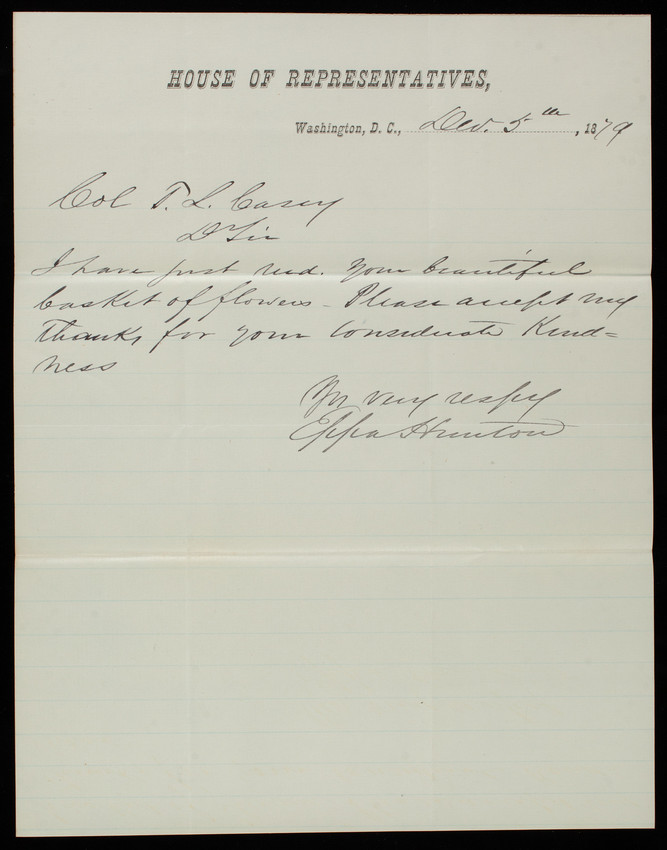 HOUSE OF REPRESENTATIVES,
Washington, D. C., Dec. 5th, 1879
Col T. L. Casey
D Sir
I have just recd. your beautiful
basket of flowers - Please accept my
thanks for your considerate Kind=
ness
Yr very respy
Eppa Hunton